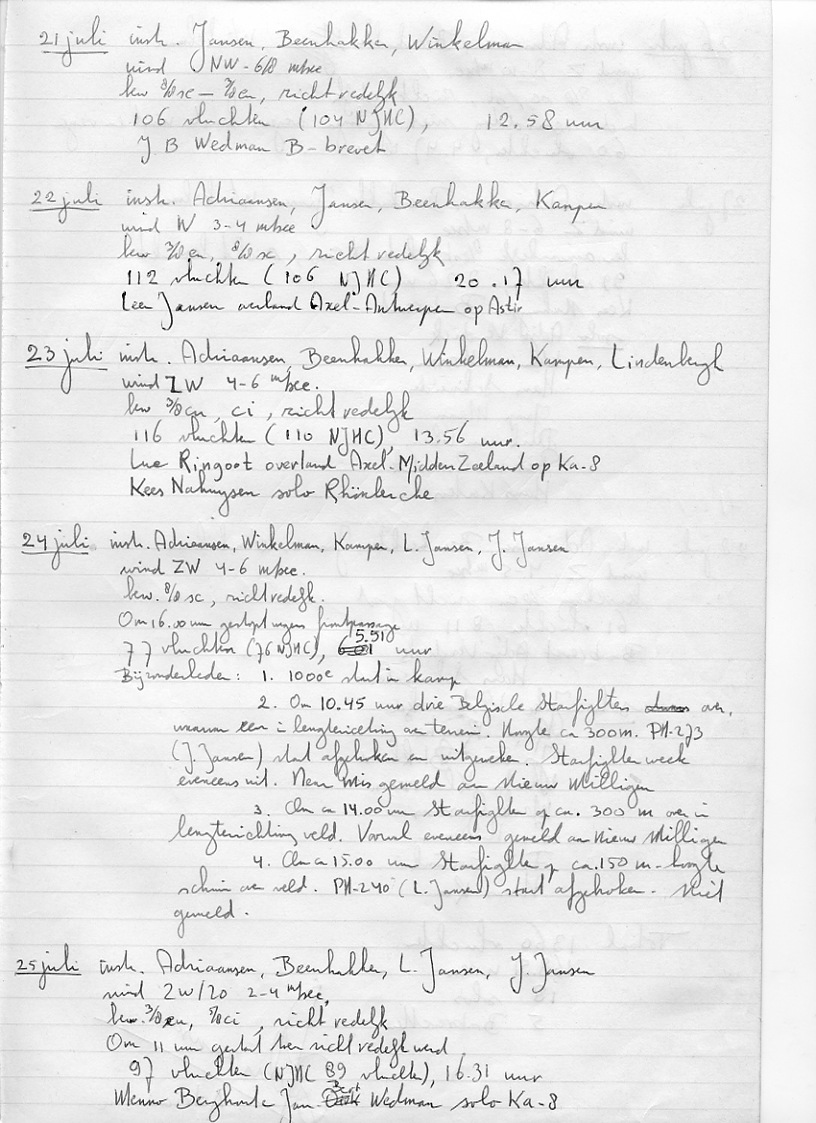 21 juli instr. Jansen, Beenhakker, Winkelman
wind NW - 6/8 m/sec
bew 8/8 sc - 7/8 cu, zicht redelijk
106 vluchten (104 NJHC), 12.58 uur
J B Wedman B-brevet
22 juli instr. Adriaansen, Jansen, Beenhakker, Kampen
wind W 3-4 m/sec
bew 3/8 cu, 8/8 sc, zicht redelijk
112 vluchten (106 NJHC) 20.17 uur
Leen Jansen overland Axel-Antwerpen op Astir
23 juli instr. Adriaansen, Beenhakker, Winkelman, Kampen, Lindenbergh
wind ZW 4-6 m/sec.
bew 3/8 cu, ci, zicht redelijk
116 vluchten (110 NJHC), 13.56 uur.
Luc Ringoot overland Axel-Midden Zeeland op Ka-8
Kees Nahuysen solo Rhönlerche
24 juli instr. Adriaansen, Winkelman, Kampen, L. Jansen, J. Jansen
wind ZW 4-6 m/sec.
bew. 8/8 sc, zicht redelijk.
Om 16.00 uur gestopt wegens frontpassage
77 vluchten (76 NJHC), 5.51 uur
Bijzonderheden: 1. 1000e start in kamp
2. Om 10.45 uur drie Belgische Starfighters over,
waarvan een in lengterichting van terrein. Hoogte ca 300m. PH-273
(J. Jansen) start afgebroken en uitgeweken. Starfighter week
eveneens uit. Near Mis gemeld aan Nieuw Milligen
3. Om ca 14.00 uur Starfighter op ca. 300 m over in
lengterichting veld. Voorval eveneens gemeld aan Nieuw Milligen
4. Om ca 15.00 uur Starfighter op ca. 150 m-hoogte
schuin over veld. PH-240 (L. Jansen) start afgebroken. Niet
gemeld.
25 juli instr. Adriaansen, Beenhakker, L. Jansen, J. Jansen
wind ZW/ZO 2-4 m/sec,
bew. 3/8 cu, 7/8 ci, zicht redelijk
Om 11 uur gestart toen zicht redelijk werd
97 vluchten (NJHC 89 vluchten), 16.31 uur
Menno Berghout Jan Bert Wedman solo Ka-8